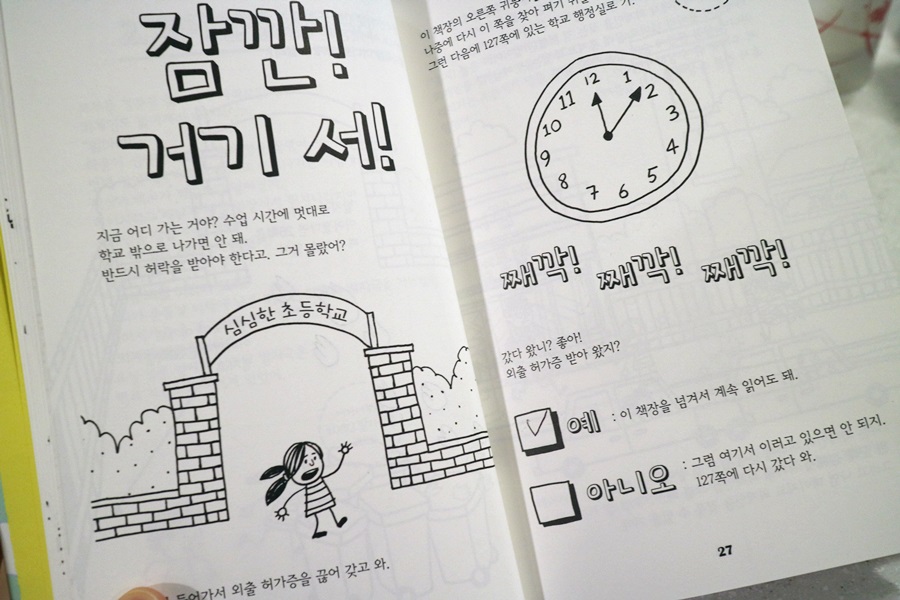 잠깐!
거기 세!
지금 어디 가는 거야? 수업 시간에 멋대로
학교 밖으로 나가면 안 돼.
반드시 허락을 받아야 한다고. 그거 몰랐어?
심심한 초등학교
들어가서 외출 허가증을 끊어 갖고 와.
이 책장의 오른쪽 귀퉁
나중에 다시 이 쪽을 찾아 펴기 쉬울
그런 다음에 127쪽에 있는 학교 행정실로 가.
12
1
2
3
4
5
6
7
8
9
10
11
째깍! 째깍! 째깍!
갔다 왔니? 좋아!
외출 허가증 받아 왔지?
예 : 이 책장을 넘겨서 계속 읽어도 돼.
아니오 : 그럼 여기서 이러고 있으면 안 되지.
127쪽에 다시 갔다 와.
27